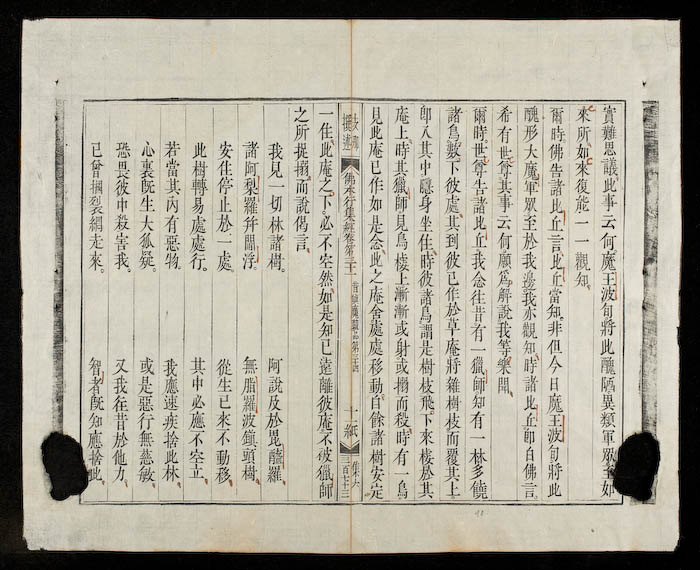 實難思議此事云何魔王波旬將此醜陋異類軍眾至如
來所如來復能一一觀知
爾時佛告諸比丘言比丘當知非但今日魔王波旬將此
醜形大魔軍眾至於我邊我亦觀知時諸比丘即白佛言
希有世尊其事云何願為解說我等樂聞
爾時世尊告諸比丘我念往昔有一獵師知有一林多饒
諸鳥數下彼處其到彼已作於草庵將雜樹枝而覆其上
卽入其中隱身坐住時彼諸鳥謂是樹枝飛下來棲於其
庵上時其獵師見鳥棲上漸漸或射或搦而殺時有一鳥
見此庵已作如是念此之庵舍處處移動自餘諸樹安定
佛本行集經卷第三十一
昔與魔競品第三十四
十紙
集六
一住此庵之下必不空然如是知已遠離彼庵不被獵師
之所捉搦而說偈言
我見一切林諸樹。 阿說及於毘醯羅
諸阿梨羅幷閻浮。 無脂羅波鎮頭樹。
安住停止於一處。 從生已來不動移
此樹轉易處處行。 其中必應不空立。
若當其內有惡物。 我應速疾捨此林。
心裏旣生大狐疑。 或是惡行無慈敏。
恐畏彼中殺害我。 又我往昔於他力。
已曾摑裂網走來。 智者旣知應捨此。